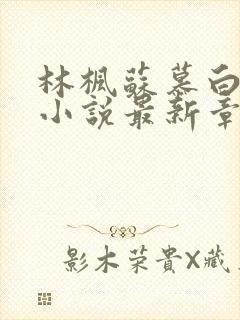 林楓蘇慕白
小說最新章
影木荣貴X藏